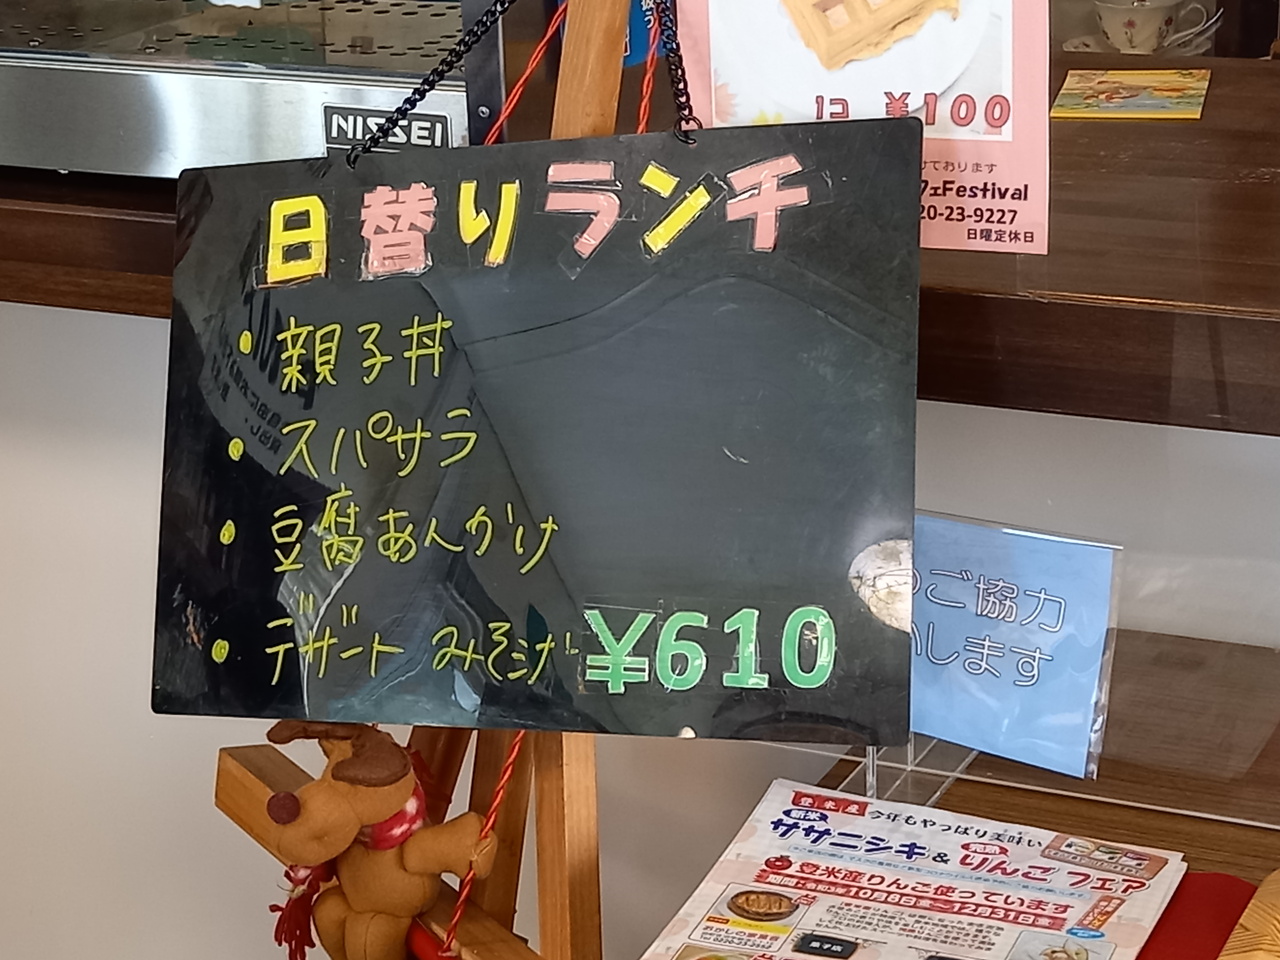 NISSEI
1コ ¥100
けております
フェFestival
20-23-9227
日曜定休日
日替りランチ
・親子丼
・スパサラ
・豆腐あんかけ
・デザート みそ汁 ¥610
のご協力
いします
登米産
今年もやっぱり美味い
新米
ササニシキ&完熟りんごフェア
登米産りんご使っています
10月8日 12月31日